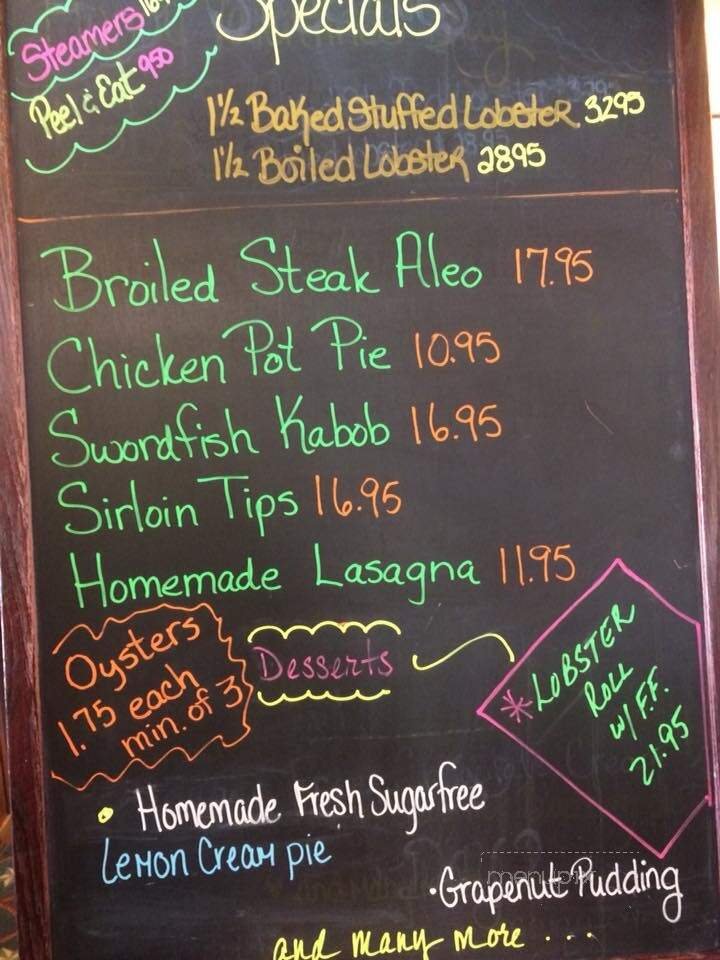 Specials
Steamers
Peel & Eat 950
1 1/2 Baked Stuffed Lobster 3295
1 1/2 Boiled Lobster 2895
Broiled Steak Aleo 17.95
Chicken Pot Pie 10.95
Swordfish Kabob 16.95
Sirloin Tips 16.95
Homemade Lasagna 11.95
Oysters
1.75 each
min. of 3
Desserts
*LOBSTER
ROLL
W/ F.F.
21.95
• Homemade Fresh Sugarfree
Lemon Cream pie
•Grapenut Pudding
and many more ...